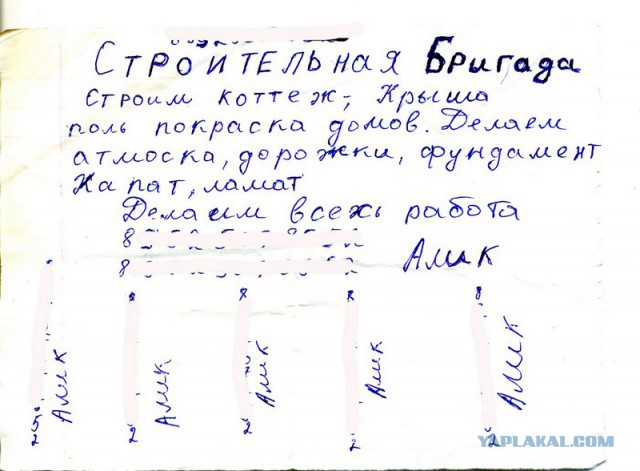 Строительная Бригада
Строим коттеж-, Крыша
поль покраска домов. Делаем
атмоска, дорожки, фундамент
Капат, ламат
Делаем всехь работа
8
8 Амик
Амик
Амик
Амик
Амик
Амик
YAPLAKAL.COM